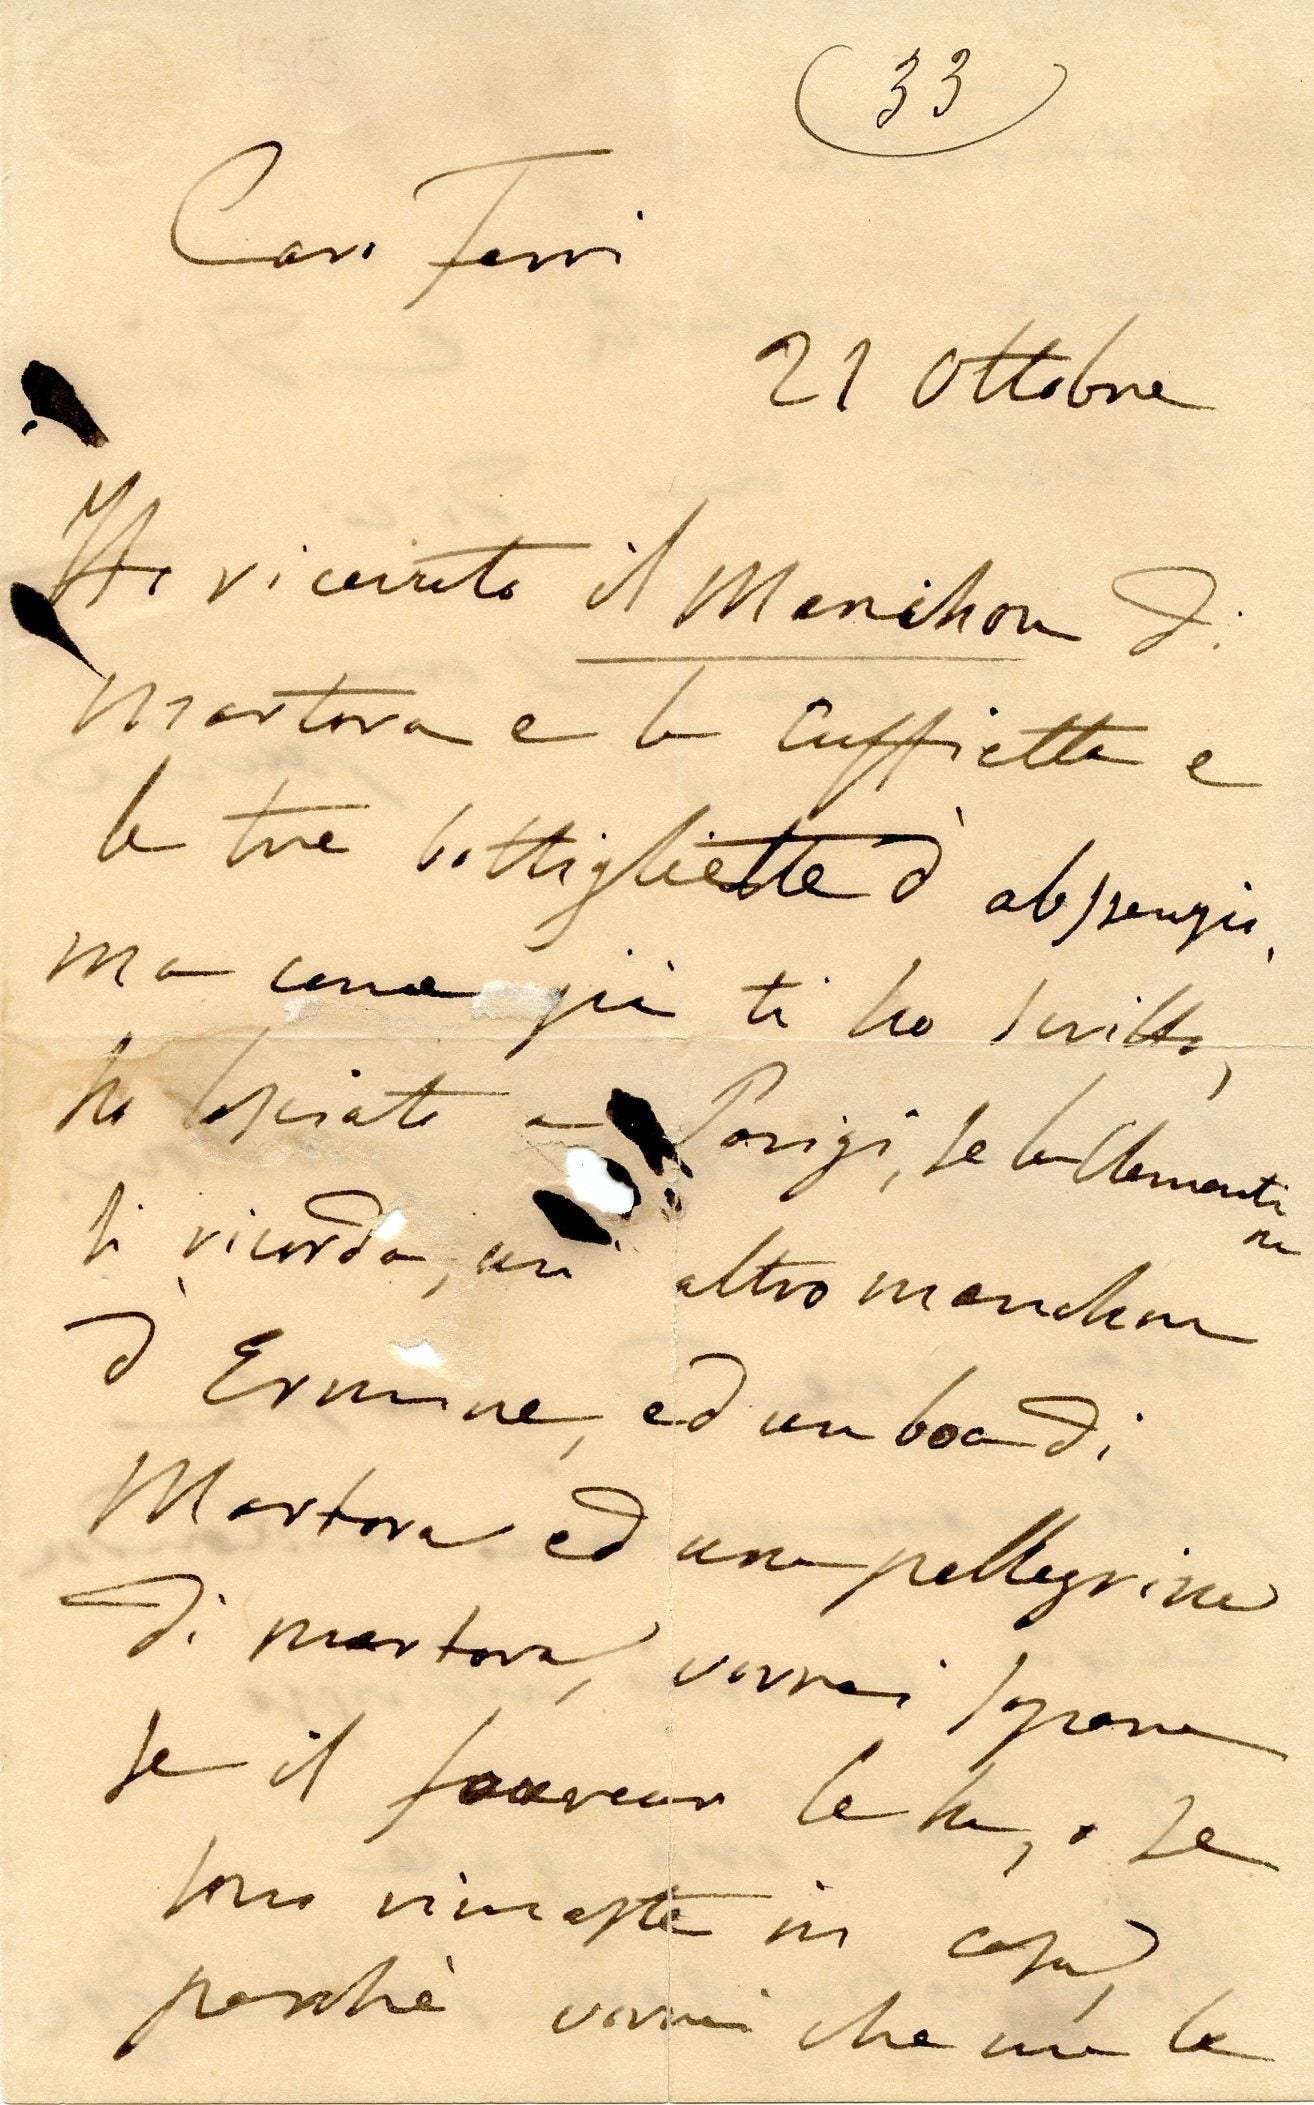 33
Caro Ferri
21 Ottobre
Ho ricevuto il Manchon di
Martora e la cuffietta e
le tue bottigliette d'absenzio,
ma come già ti ho scritto,
ho lasciato a Parigi, se la Clementi
na
si ricorda, un altro manchon
d'Ermine, ed un boa di
Martora ed una pellegrina
di martora, vorrei sapere
se il foureur le ha, o se
sono rimaste in casa,
perchè vorrei che me le